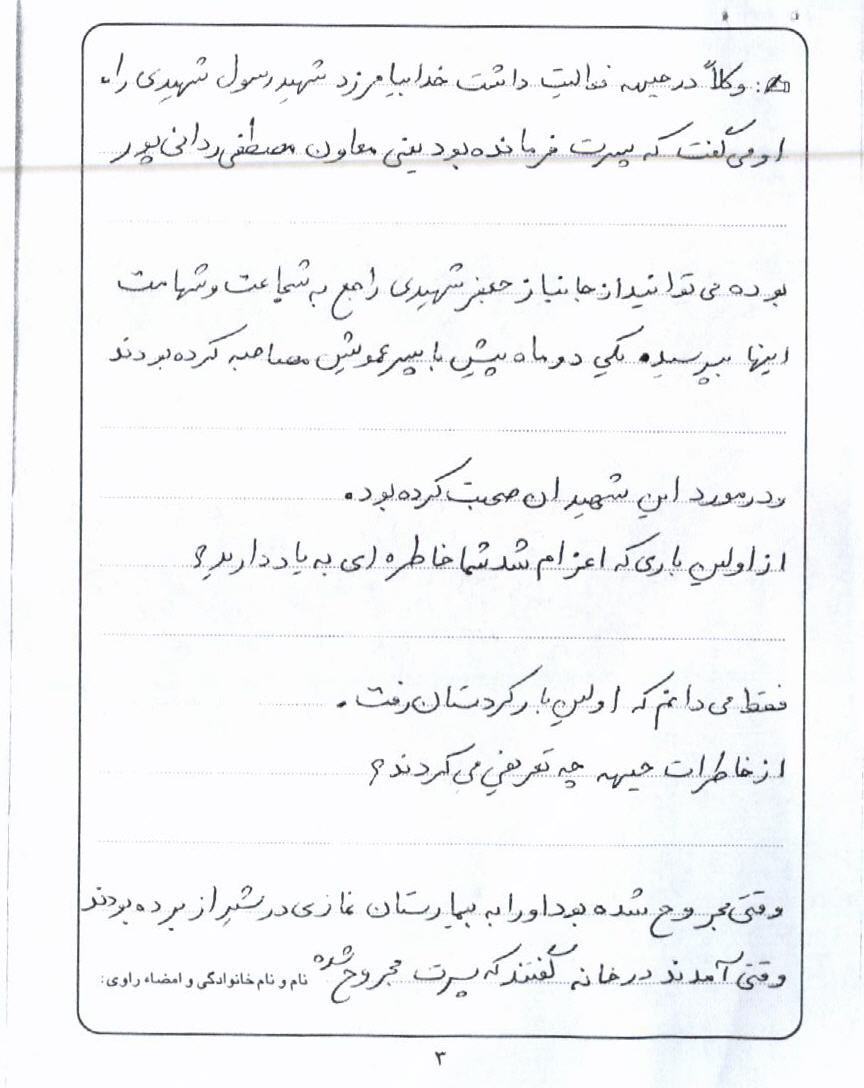 ✍: وکلاً در جبهه فعالیت داشت خدا بیامرزد شهید رسول شهیدی را.
او می گفت که پسرت فرمانده بود یعنی معاون مصطفی ردانی پور
بوده می توانید از جانباز جعفر شهیدی راجع به شجاعت و شهامت
اینها بپرسید. یکی دو ماه پیش با پسر عمویش مصاحبه کرده بودند
ودر مورد این شهیدان صحبت کرده بود.
از اولین باری که اعزام شد شما خاطره ای به یاد دارید؟
فقط می دانم که اولین بار کردستان رفت.
از خاطرات جبهه چه تعریفی می کردند؟
وقتی مجروح شده بود او را به بیمارستان نمازی در شیراز برده بودند
وقتی آمدند در خانه گفتند که پسرت مجروح شده
نام و نام خانوادگی و امضاء راوی:
۳